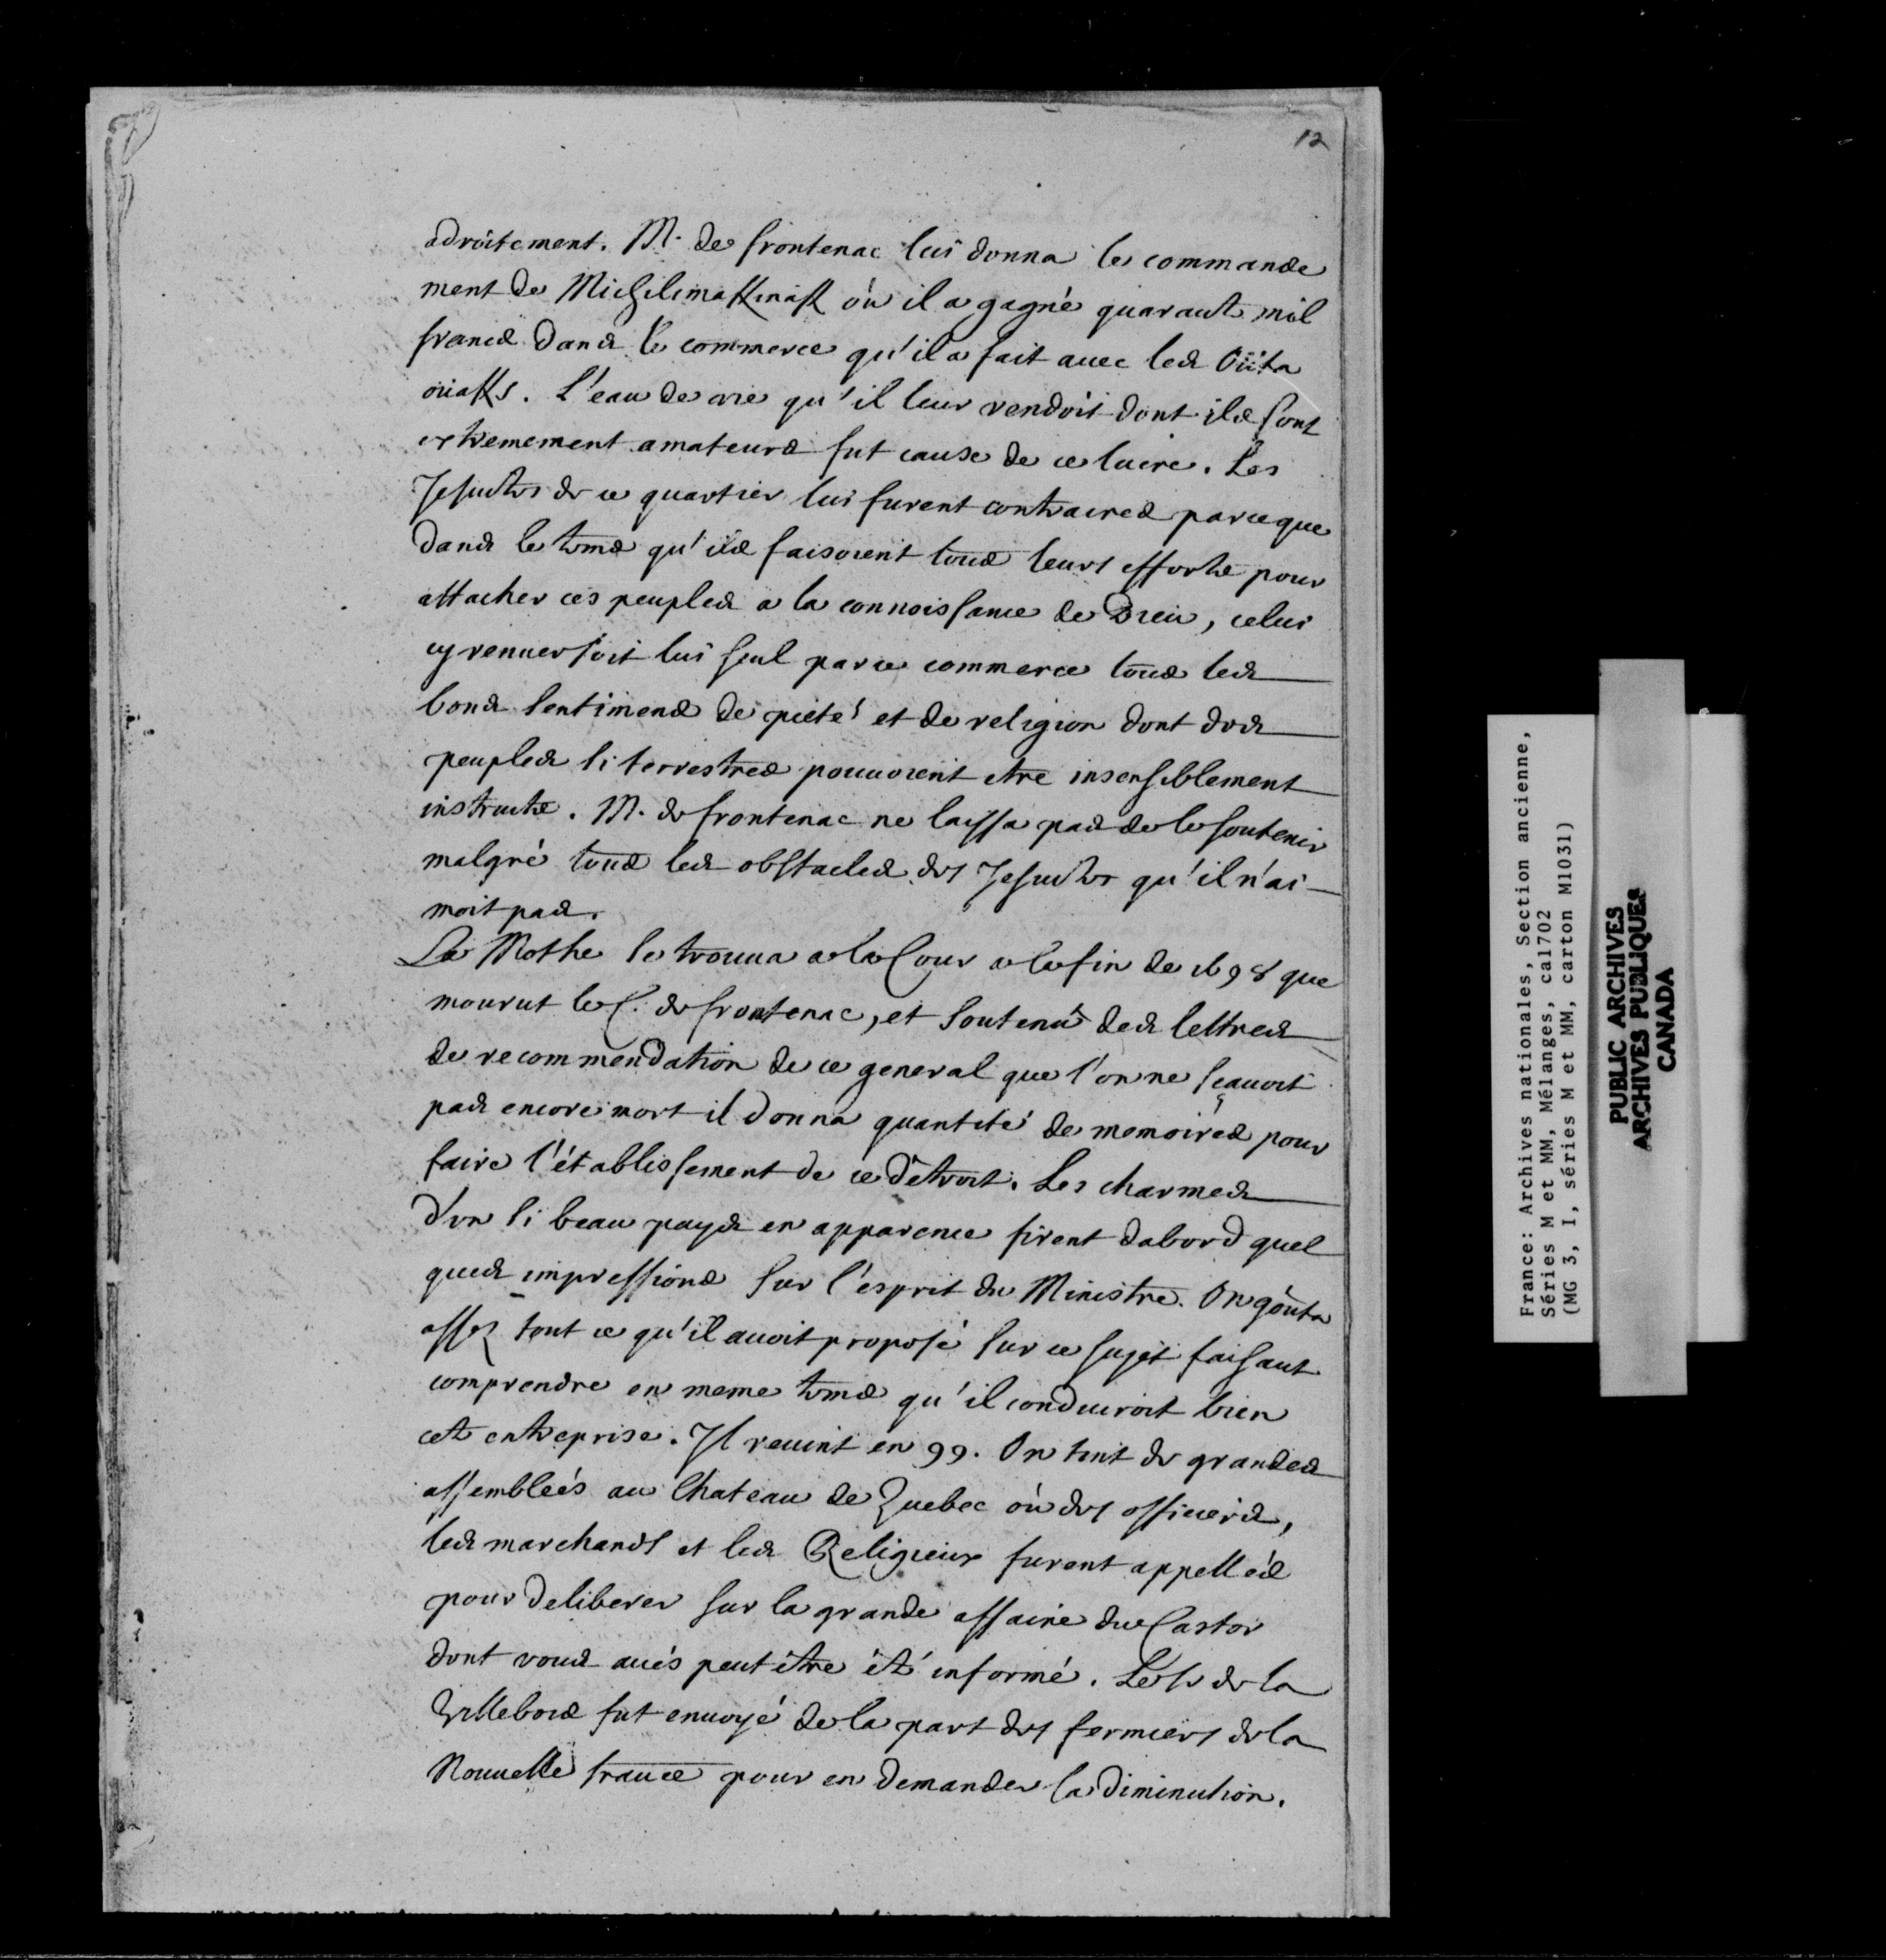 12
adroitement. M. de frontenac lui donna le commande
ment de MichilimaKinaK où il a gagné quarante mil
francs dans le commerce qu'il a fait avec les Oüta
oüaKs. L'eau de vie qu'il leur vendoit dont ils sont
extremement amateurs fut cause de ce lucre. Les
Jesuites de ce quartier lui furent contraires parceque
dans le tems qu'ils faisoient tous leurs efforts pour
attacher ces peuples a la connoissance de Dieu, celui
cy renversoit lui seul par ce commerce tous les
bons sentimens de pieté et de religion dont des
peuples si terrestres pouvoient etre insensiblement
instruits. M. de frontenac ne laissa pas de le soutenir
malgré tous les obstacles des Jesuites qu'il n'ai-
moit pas.
La Mothe se trouva a la Cour a la fin de 1698 que
mourut le C. de frontenac, et soutenû des lettres
de recommendation de ce general que l'on ne sçavoit
pas encore mort il donna quantité de memoires pour
faire l'établissement de ce détroit. Les charmes
d'un si beau pays en apparence firent dabord quel
ques impressions sur l'esprit du Ministre. On goûta
assez tout ce qu'il avoit proposé sur ce sujet faisant
comprendre en meme tems qu'il conduiroit bien
cette entreprise. Il revint en 99. On tint de grandes
assemblées au Chateau de Quebec où des officiers,
les marchands et les Religieux furent appellés
pour deliberer sur la grande affaire du Castor
dont vous avés peut être été informé. Le Sr de la
fut envoyé de la part des fermiers de la
Nouvelle france pour en demander la diminution.
France: Archives nationales, Section ancienne,
Séries M et MM, Mélanges, ca1702
(MG 3, I, séries M et MM, carton M1031)
PUBLIC ARCHIVES
ARCHIVES PUBLIQUES
CANADA